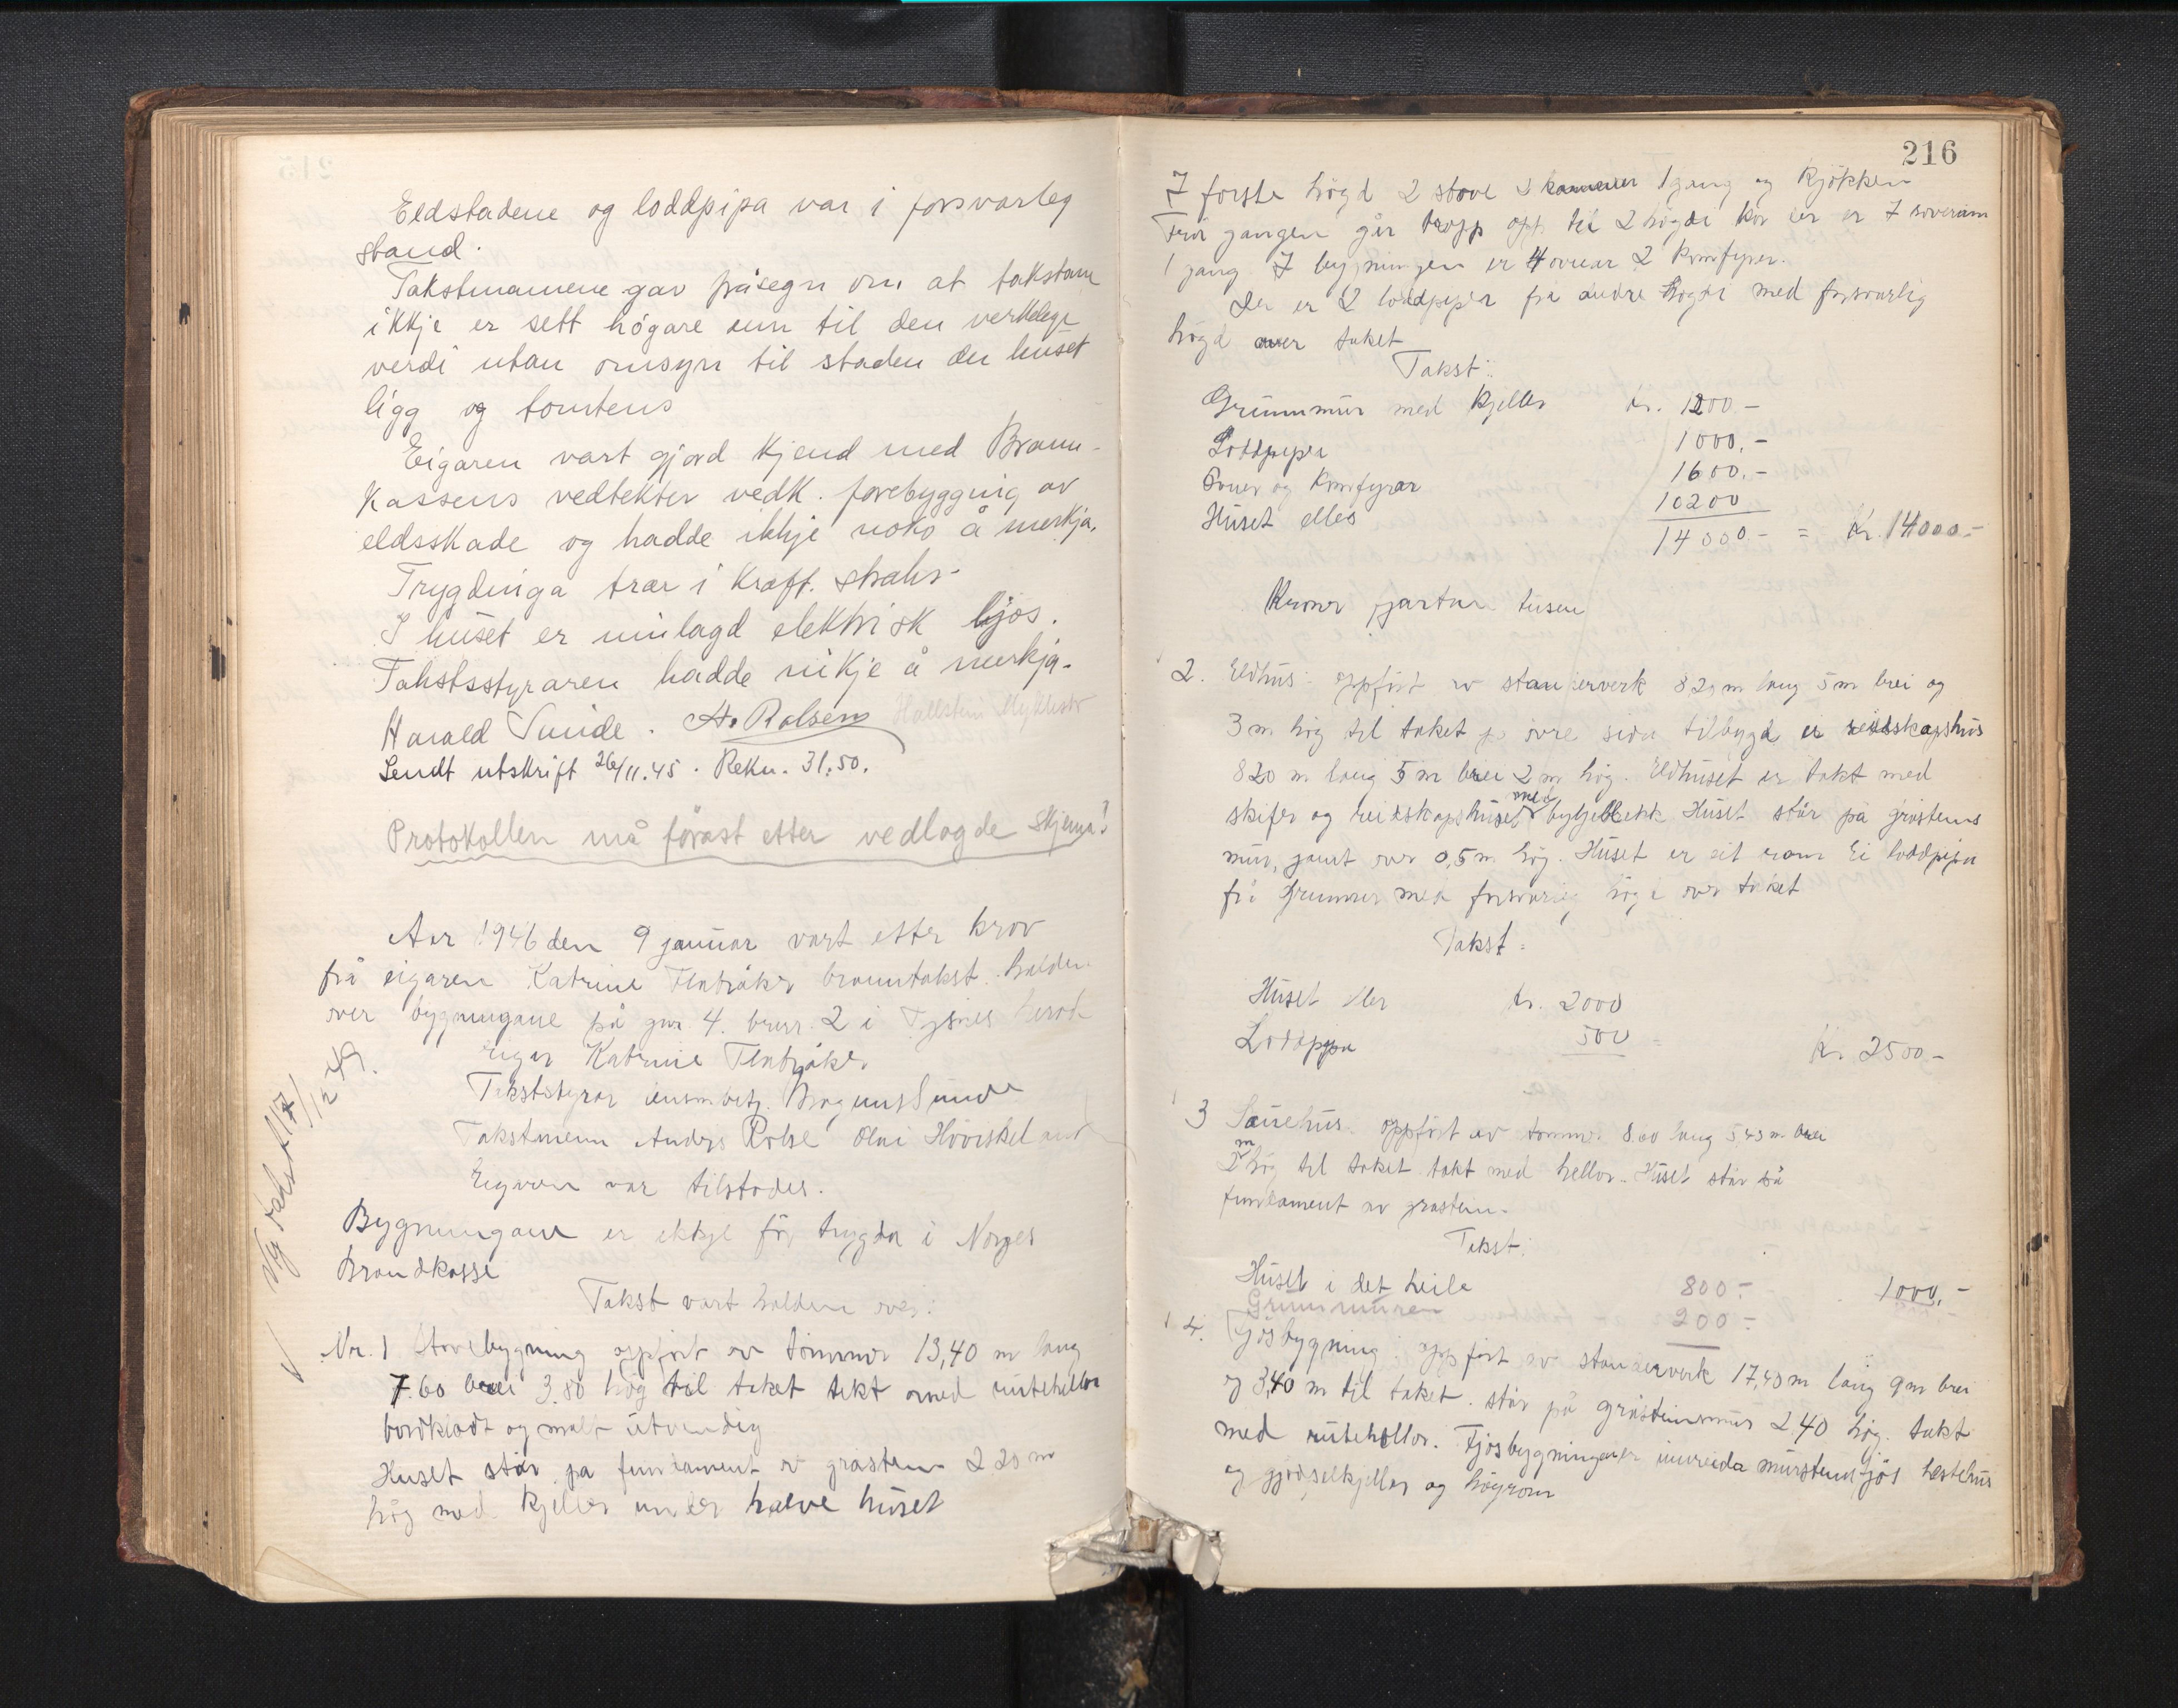 Eldstadene og loddpipa var i forsvarleg
stand.
Takstmennene gav påsegn om at takstane
ikkje er sett högare enn til den verkelege
verdi utan omsyn til staden der huset
ligg og tomtens
Eigaren vart gjord kjend med Brann-
kassens vedtekter vedk. forebygging av
eldsskade og hadde ikkje noko å merkja.
Trygdinga trær i kraft straks.
I huset er innlagd elektrisk ljos.
Takstsstyraren hadde inkje å merkja.
Harald Sunde. A. Rolsen Hallstein Myklestad
Sendt utskrift 26/11.45. Rekn. 31.50.
Protokollen må förast etter vedlagde skjema!
Aar 1946 den 9 januar vart etter krav
frå eigaren Katrine Flatråker branntakst halden
over bygningane på gnr 4. brur. 2 i Tysnes herad
Eigar Katrine Flatråker
Takststyrar Magnus Sunde
Takstmenn Anders Rolse Olai Hoviskeland
Eigaren var tilstades.
Bygningane er ikkje för trygda i Norges
Brandkasse
Takst vart halden over:
Ny takst 17/12 49.
Nr. 1 Stovebygning oppfört av tömmer 13,40 m lang
7.60 brei 3.80 hög til taket tekt med rutehellor
bordkledt og malt utvendig
Huset står på fundament av gråstein 2 20 m
hög med kjeller under halve huset
216
I förste högd 2 stove 2 kammer 1 gang og kjökken
Frå gangen går tropp opp til 2 högdi kor der er 7 soverom
1 gang I bygningen er 4 ovnar 2 komfyrer.
Der er 2 loddpiper frå andre högdi med forsvarlig
högd over taket
Takst:
Grunnmur med kjeller kr. 1200 -
Loddpiper 1000.-
Ovner og komfyrar 1600.-
Huset elles 10200
14000.- = Kr. 14000.-
Kroner fjortan tusen
2. Eldhus: oppfört av stenderverk 8 20 m lang 5 m brei og
3 m hög til taket på övre sida tilbygd er reidskapshus
8 20 m lang 5 m brei 2 m hög. Eldhuset er tekt med
skifer og reidskapshuset med bylgjeblekk Huset står på gråsteins
mur, jamt over 0,5 m hög. Huset er eit rom Ei loddpipa
frå Grunnen med forsvarlig högd over taket
Takst:
Huset elles kr. 2000
Loddpipa 500 Kr. 2500 -
3 Sauehus. oppfört av tömmer 8.00 lang 5,43 m brei
2 m hög til taket tekt med hellor. Huset står på
fundament av gråstein.
Takst:
Huset i det heile 800.- 1000.-
Grunnmuren 200.-
4. Fjösbygning: oppfört av stenderverk 17,40 m lang 9 m brei
og 3,40 m til taket. står på gråsteinsmur 2,40 hög. tekt
med rutehellor. Fjösbygningen er innreida mursteinfjös hestehus
og gjödselkjeller og höyrom